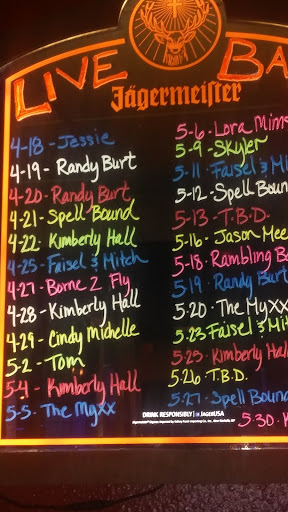 LIVE BA
Jägermeister
4-18 - Jessie
4-19 - Randy Burt
4-20 - Randy Burt
4-21 - Spell Bound
4-22 - Kimberly Hall
4-25 - Faisel & Mitch
4-27 - Borne 2 Fly
4-28 - Kimberly Hall
4-29 - Cindy Michelle
5-2 - Tom
5-4 - Kimberly Hall
5-5 - The Myxx
5-6 - Lora Mims
5-9 - Skyler
5-11 - Faisel & Mi
5-12 - Spell Boun
5-13 - T.B.D.
5-16 - Jason Mee
5-18 - Rambling Bo
5-19 - Randy Burt
5-20 - The Myxx
5-23 Faisel & Mit
5-23 - Kimberly Hall
5-26 - T.B.D.
5-27 - Spell Bound
5-30 - K
DRINK RESPONSIBLY | JÄGERUSA